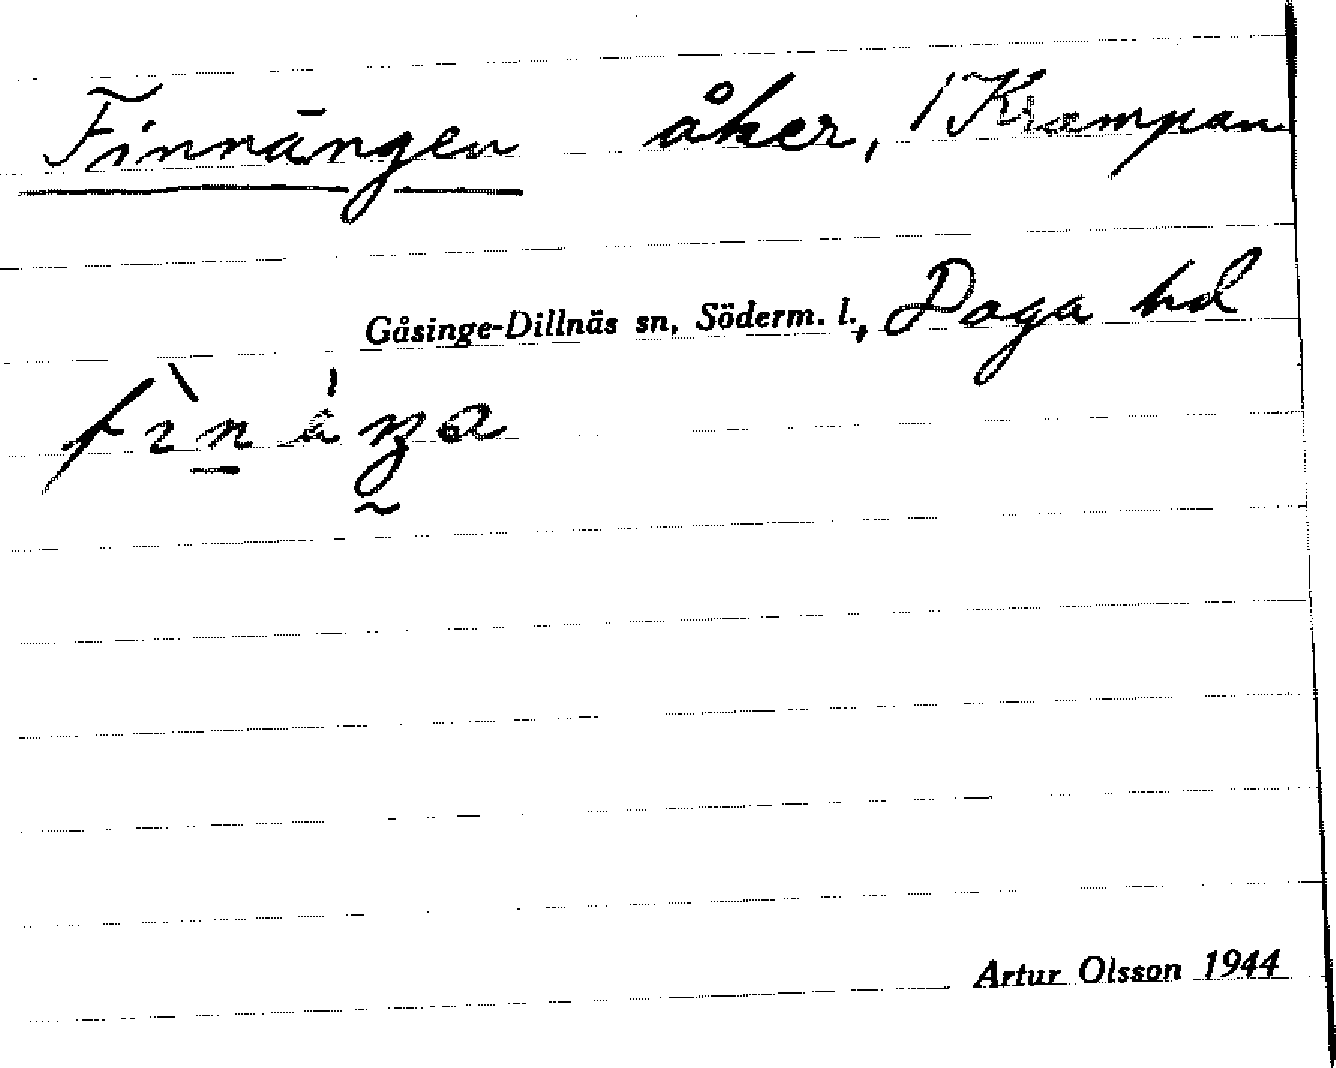 Finnängen åker, / Krampan
Gåsinge-Dillnäs sn, Söderm. l., Daga hd
Artur Olsson 1944